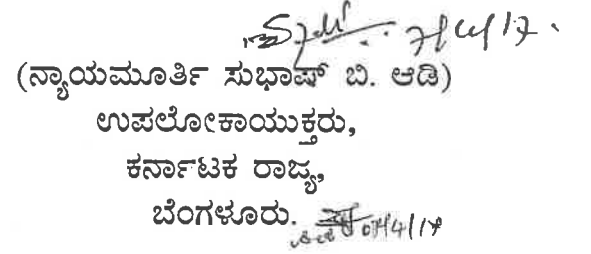 7/4/17.
(ನ್ಯಾಯಮೂರ್ತಿ ಸುಭಾಷ್ ಬಿ. ಆಡಿ)
ಉಪಲೋಕಾಯುಕ್ತರು,
ಕರ್ನಾಟಕ ರಾಜ್ಯ,
ಬೆಂಗಳೂರು. 07/4/17